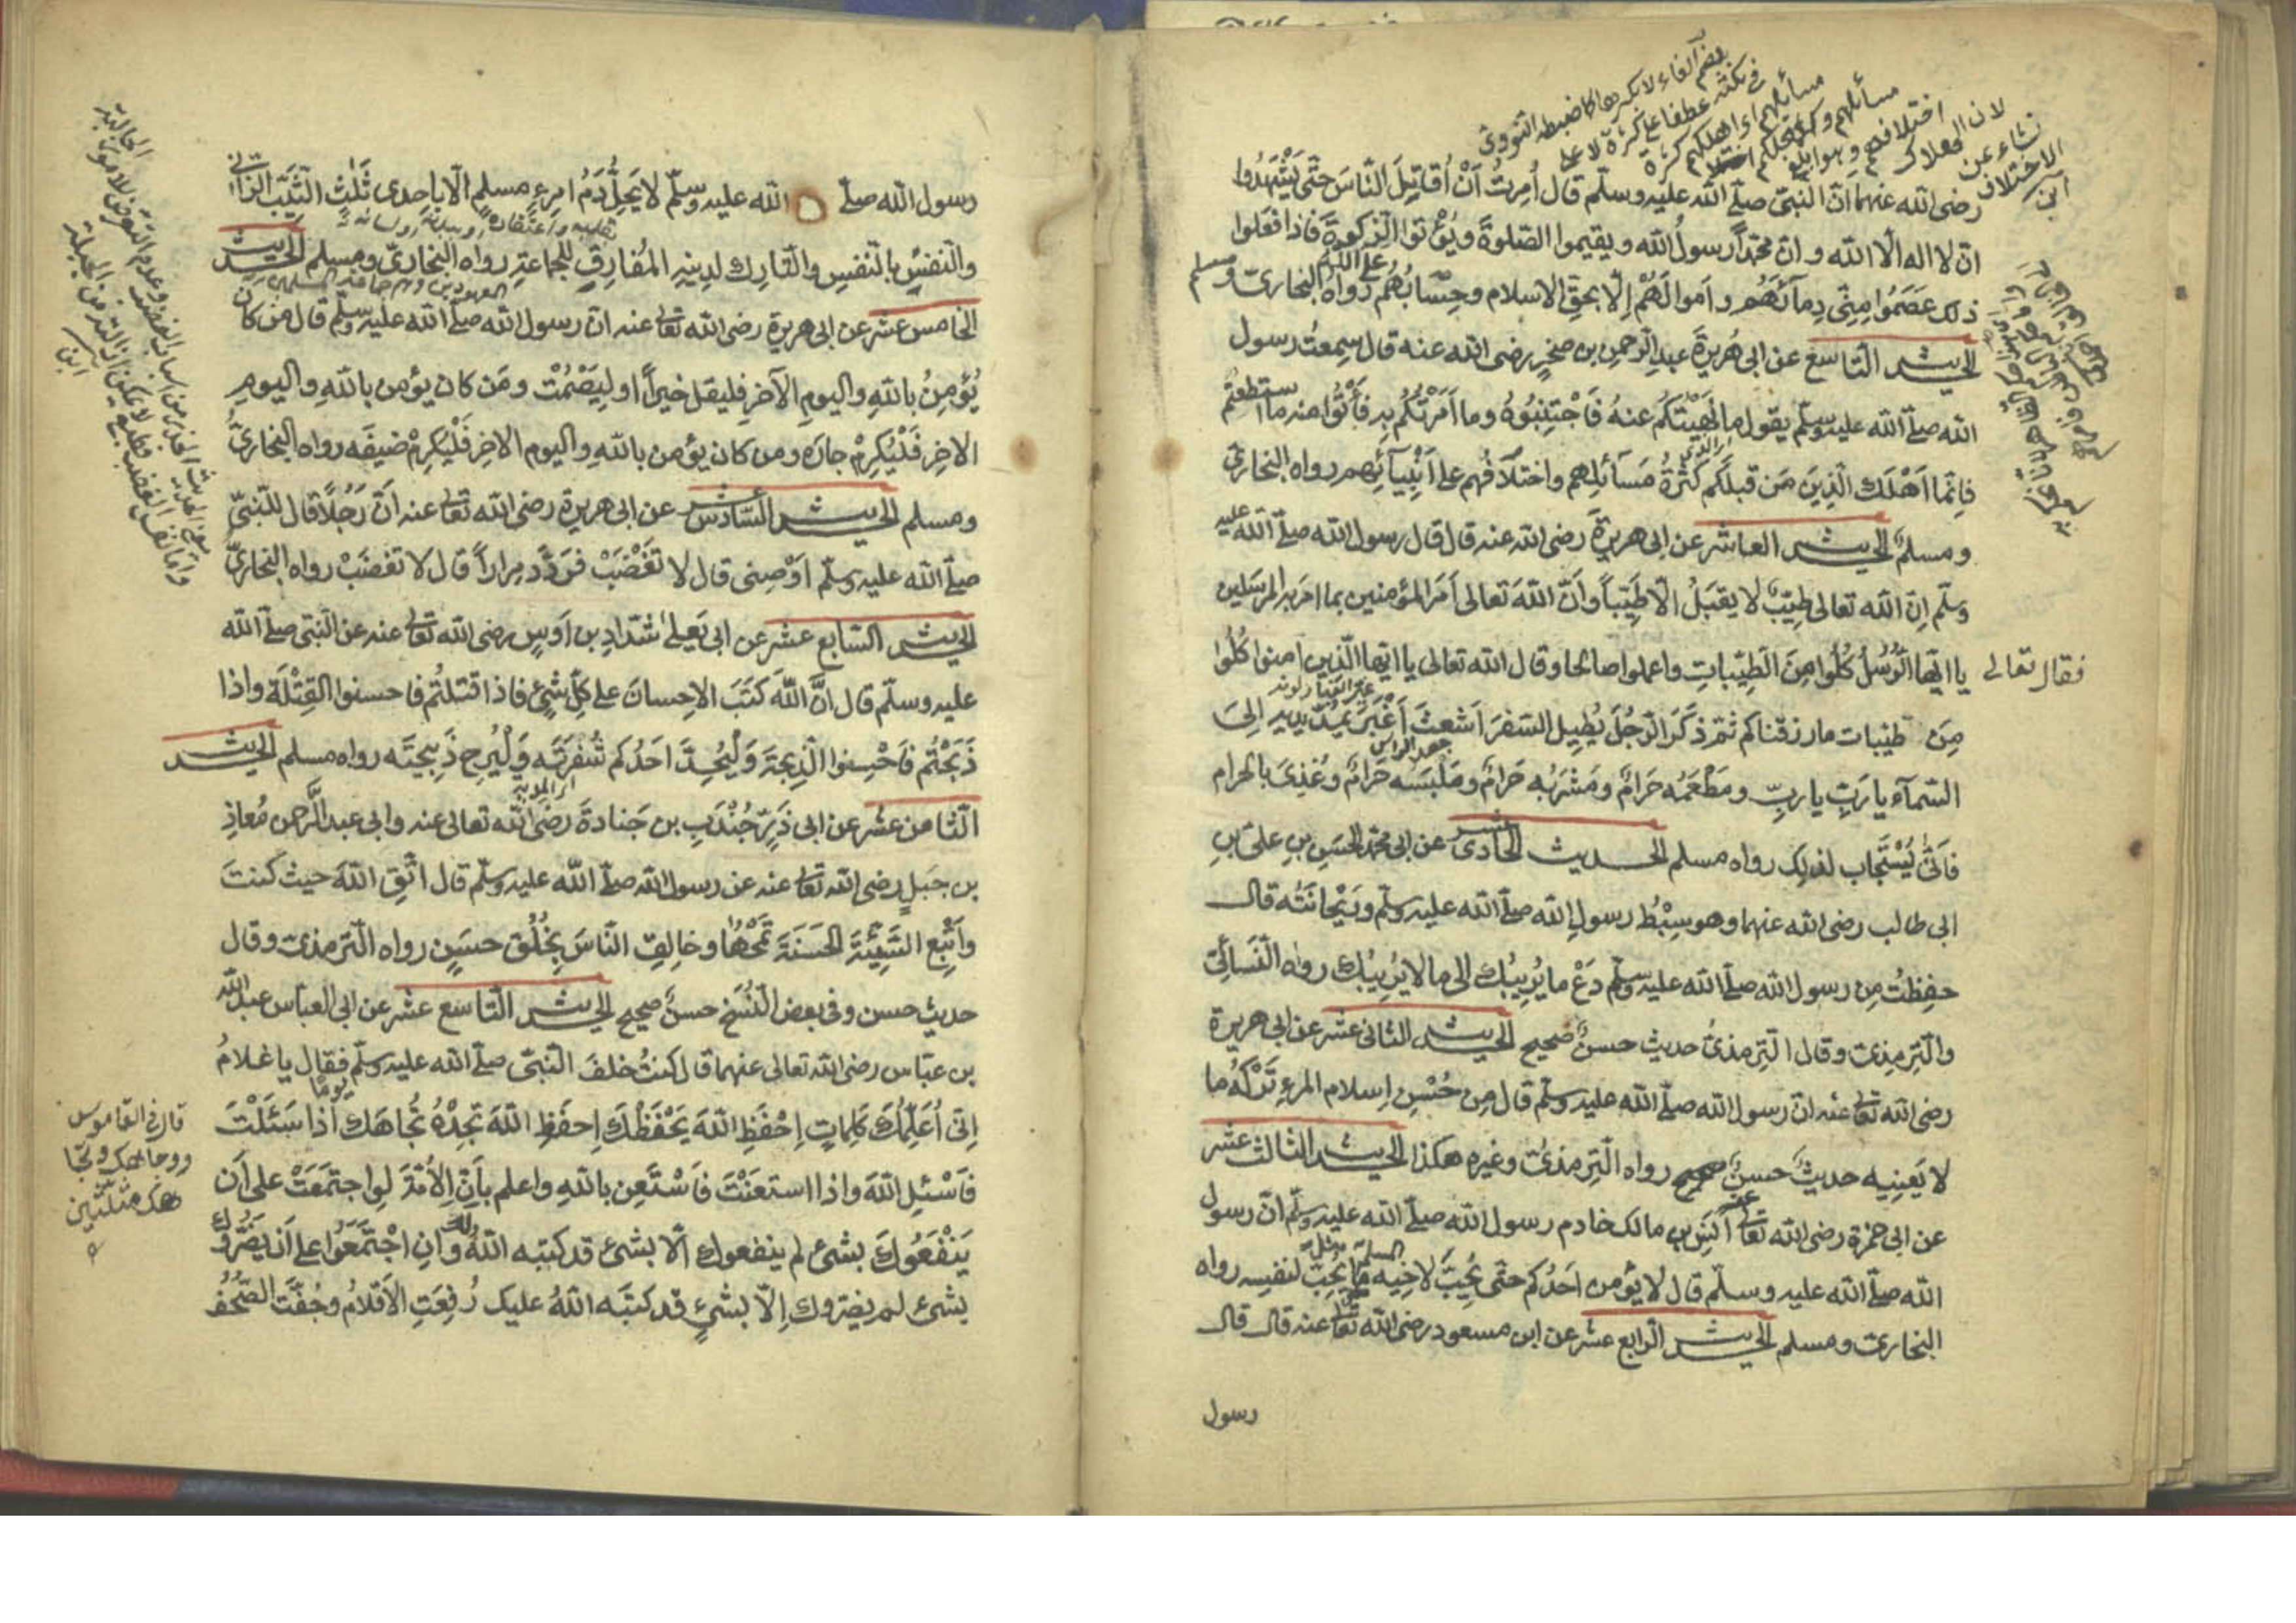 رضى الله عنهما انّ النبىّ صلّى الله عليه وسلّم قال اُمِرتُ اَنْ اُقاتِلَ النّاسَ حتّى يَشْهَدُوا
ان لا اله الّا الله و انّ محمّداً رسولُ الله ويقيموا الصّلوةَ ويُؤْتوا الزّكوةَ فاذا فعَلوا
ذلك عَصَمُوا مِنّى دِمآئَهُم و اَموالَهُم اِلّا بحقِّ الاسلام وحِسَابُهُم على الله رواه البخارىّ ومسلم
الحديث التّاسع عن ابى هُرَيرَةَ عبدِ الرّحمنِ بن صَخرٍ رضى الله عنه قال سمِعتُ رسول
الله صلّى الله عليه وسلّم يقول ما نَهَيْتُكُم عنهُ فَاجْتَنِبُوهُ وما اَمَرْتُكُم بِه فَأْتُوا منه ما استطعتُم
فاِنّما اَهْلَكَ الّذينَ مَن قبلَكُم كَثرَةُ مَسَآئِلِهِم واختلَافُهم على اَنْبِيَآئِهم رواه البخارىّ
ومسلم الحديث العاشر عن ابى هريرةَ رضى الله عنه قال قال رسول الله صلّى الله عليه
وسلّم اِنّ الله تعالى طيّبٌ لا يقبَلُ الّا طَيّباً وَاَنّ اللهَ تعالى اَمَرَ المؤمنين بما امرَ به المرسَلين
فقال تعالى يا ايّها الرُّسُلُ كُلُوا مِنَ الطّيّباتِ واعملوا صالحا وقال الله تعالى يا ايّها الّذين امنوا كُلُوا
مِنَ طيّبات ما رزقناكم ثمّ ذكَرَ الرّجُلَ يُطِيل السّفَرَ اَشعثَ اَغْبَرَ يمدّ يديه الىَ
السّمآء يا ربِّ يا ربِّ ومَطْعَمُه حَرامٌ ومَشْرَبُه حَرامٌ ومَلْبَسُه حَرامٌ وغُذِىَ بالحرام
فاَنّى يُسْتَجَاب لذلِك رواه مسلم الحديث الحادى عشر عن ابى محمّد الحَسَنِ بنِ علىّ بنِ
ابى طالب رضى الله عنهما وهو سِبْطُ رسولِ الله صلّى الله عليه وسلّم ورَيْحانَتُه قال
حفِظتُ مِن رسول الله صلّى الله عليه وسلّم دَعْ ما يُرِيبُك الى ما لا يُرِيبُك رواه النَّسَائِىّ
والتّرمِذىّ وقال التّرمذىُّ حديث حسنٌ صحيح الحديث الثانى عشر عن ابى هريرة
رضى الله تعالى عنه انّ رسول الله صلّى الله عليه وسلّم قال مِن حُسْنِ اِسلام المرءِ تَرْكُهُ ما
لا يَعنِيه حديثٌ حسنٌ صحيح رواه التّرمذىُّ وغيره هكذا الحديث الثالث عشر
عن ابى حمزة رضى الله تعالى عنه اَنَسِ بنِ مالك خادم رسول الله صلّى الله عليه وسلّم انّ رسول
الله صلّى الله عليه وسلّم قال لا يؤمن اَحدُكم حتّى يُحِبَّ لاخِيه ما يُحِبّ لنفسِه رواه
البخارىّ ومسلم الحديث الرّابع عشر عن ابن مسعود رضى الله تعالى عنه قال قال
رسول
رسول الله صلّى الله عليه وسلّم لا يَحِلُّ دَمُ امرءٍ مسلمٍ الّا باِحدى ثَلٰثٍ الثّيّبُ الزّانى
والنّفسُ بالنّفسِ والتّارك لدِينِه المُفارِق للجماعةِ رواه البخارىّ ومسلم الحديث
الخامس عشر عن ابى هريرة رضى الله تعالى عنه انّ رسول الله صلّى الله عليه وسلّم قال مَن كان
يُؤمِنُ باللهِ واليومِ الآخرِ فليقل خيراً او لِيَصْمُتْ ومَن كان يؤمن باللهِ واليومِ
الاخِرِ فَلْيُكرِمْ جارَه ومن كان يؤمن باللهِ واليوم الاخِرِ فَلْيُكرِمْ ضيفَه رواه البخارىّ
ومسلم الحديث السّادس عشر عن ابى هريرة رضى الله تعالى عنه اَنّ رَجُلًا قال للنّبىّ
صلّى الله عليه وسلّم اَوْصِنى قال لا تَغْضَبْ فرَدَّد مِراراً قال لا تغضَبْ رواه البخارىّ
الحديث السّابع عشر عن ابى يَعلى شدّادِ بن اَوسٍ رضى الله تعالى عنه عن النّبى صلّى الله
عليه وسلّم قال اِنَّ اللهَ كَتَبَ الاِحسانَ على كلِّ شَىٍ فاذا قتلتُم فاحسنوا القِتْلَةَ واذا
ذَبَحْتُم فَاَحْسِنوا الذِّبحَةَ وَلْيُحِدَّ احَدُكم شَفرَتَه وَلْيُرِح ذَبِيحَتَه رواه مسلم الحديث
الثّامن عشر عن ابى ذَرٍّ جُنْدَبِ بن جَنادةَ رضى الله تعالى عنه وابى عبد الرّحمن مُعاذِ
بن جبَلٍ رضى الله تعالى عنه عن رسول الله صلّى الله عليه وسلّم قال اتّقِ اللهَ حيث كنتَ
واَتْبِع السّيّئةَ الحَسَنَةَ تمْحُهٰا وخالِقِ النّاسَ بِخُلُقٍ حسَنٍ رواه التّرمذىّ وقال
حديث حسن وفى بعض النُّسَخ حسنٌ صحيح الحديث التّاسع عشر عن ابى العبّاس عبد الله
بن عبّاس رضى الله تعالى عنهما قال كنتُ خلفَ النّبىّ صلّى الله عليه وسلّم يومًا فقال يا غلامُ
اِنّى اُعَلِّمُكَ كَلِماتٍ اِحْفَظِ اللهَ يَحْفَظْكَ اِحفَظِ اللهَ تَجِدْهُ تُجاهَكَ اذا سَئَلْتَ
فَاسْئلِ اللهَ واذا استعَنْتَ فَاسْتَعِن باللهِ واعلم بأنّ الاُمّةَ لوِ اجتمَعَتْ على اَن
يَنْفَعُوكَ بشئ لم ينفعوك الّا بشئ قد كتبَه اللهُ لك وَانِ اجْتَمَعُوا على اَن يَضرّوك
بشئ لم يضرّوك اِلّا بشئٍ قد كتبَه اللهُ عليك رُفِعَتِ الاَقلامُ وجُفّت الصُّحُفُ
قال فى القاموس
ووجاهك وتجا
هك مثلّثين